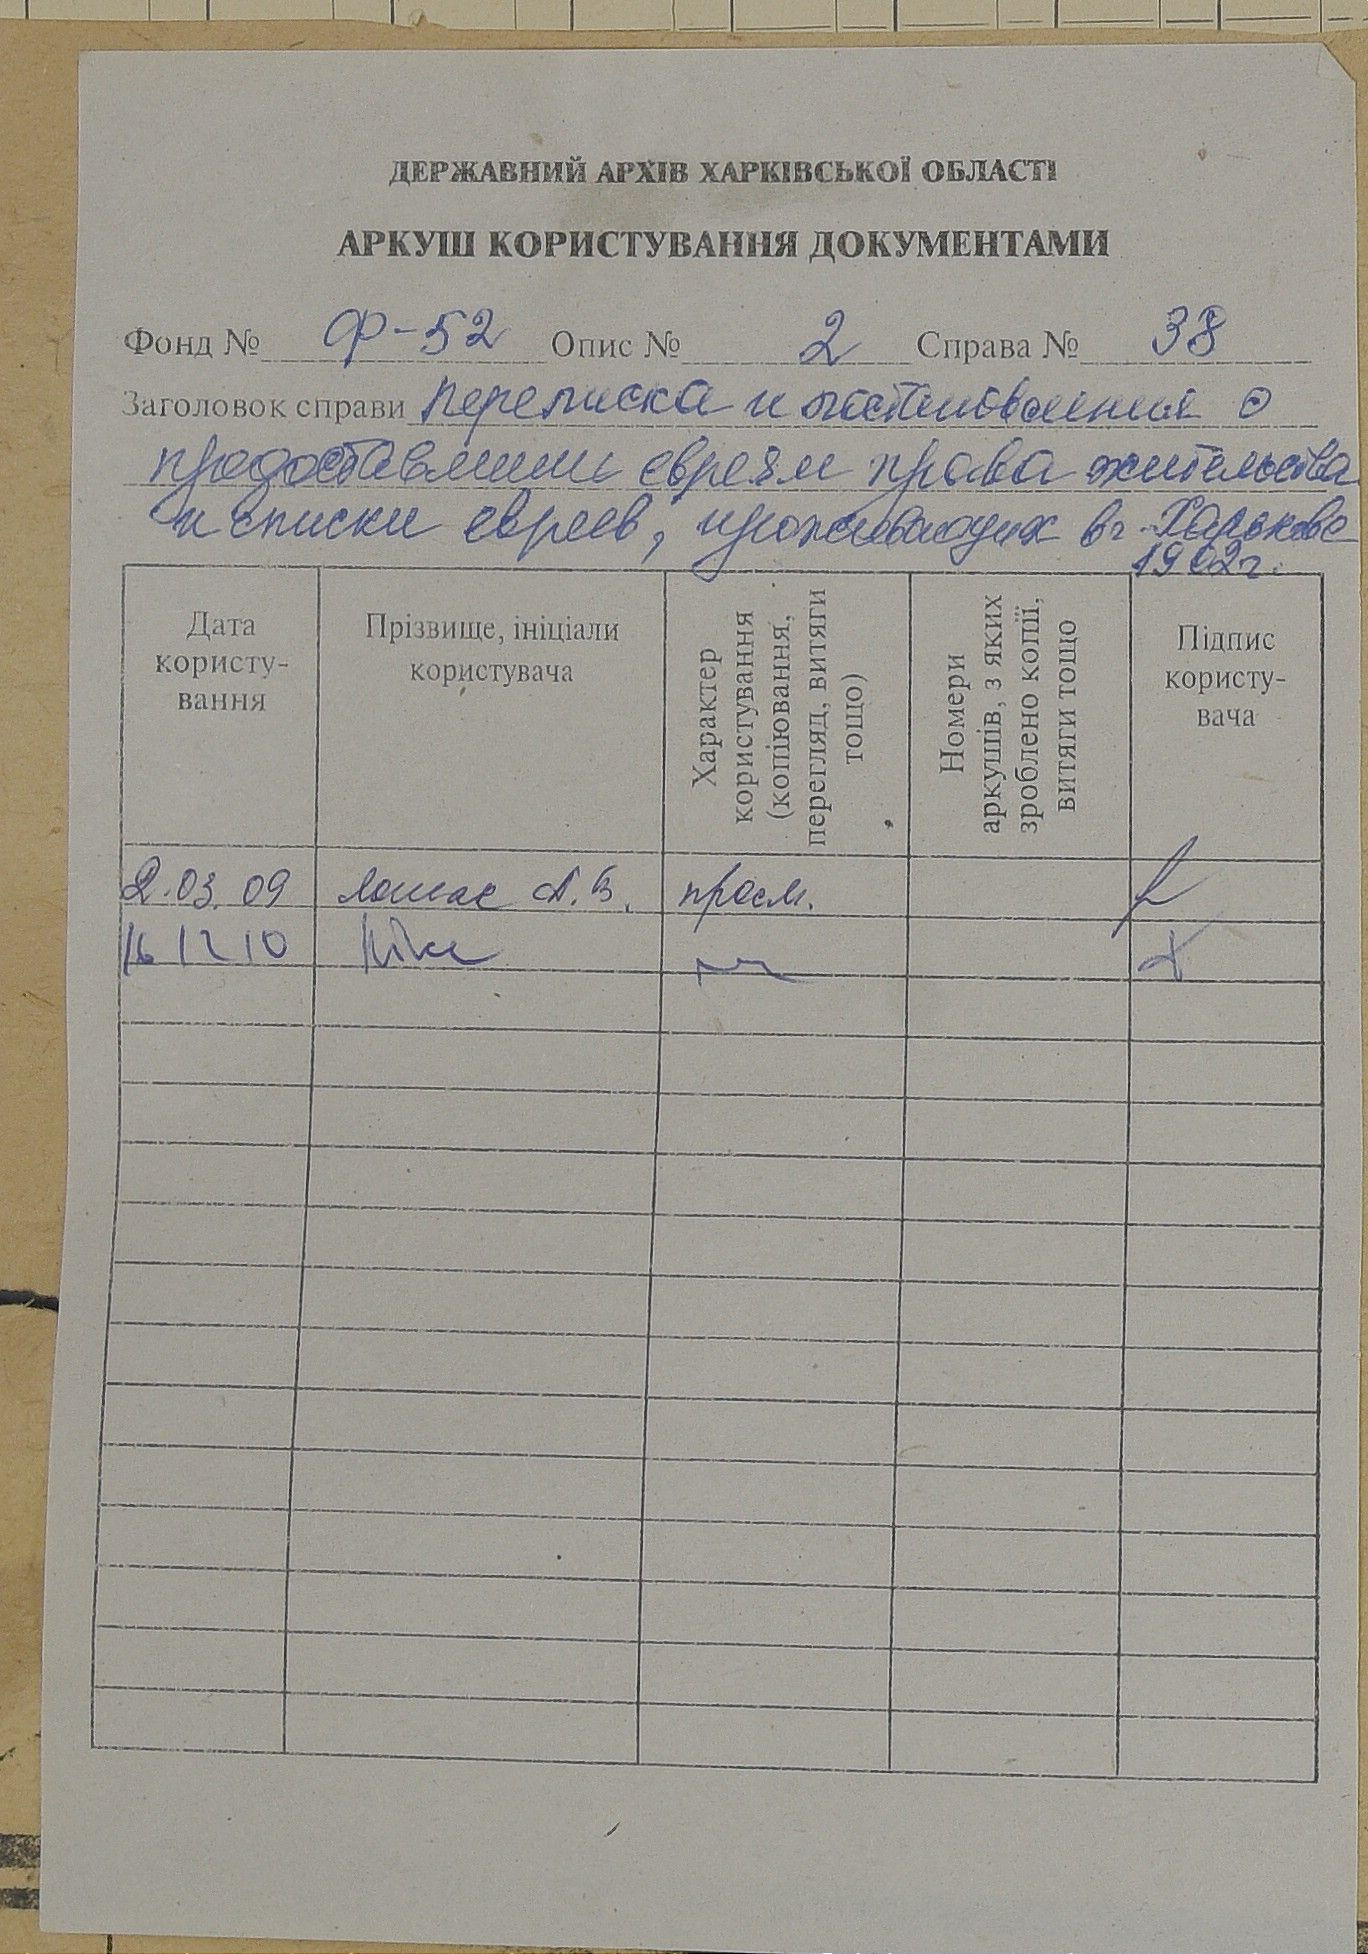 ДЕРЖАВНИЙ АРХІВ ХАРКІВСЬКОЇ ОБЛАСТІ
АРКУШ КОРИСТУВАННЯ ДОКУМЕНТАМИ
Фонд № Ф-52 Опис № 2 Справа № 38
Заголовок справи Переписка и постановления о
предоставлении евреям права жительства
и списки евреев, проживающих в г. Харькове
1902г.
Дата
користу-
вання
Прізвище, ініціали
користувача
Характер
користування
(копіювання,
перегляд, витяги
тощо)
Номери
аркушів, з яких
зроблено копії,
витяги тощо
Підпис
користу-
вача
2.03.09 А.В. просм.
16 12 10